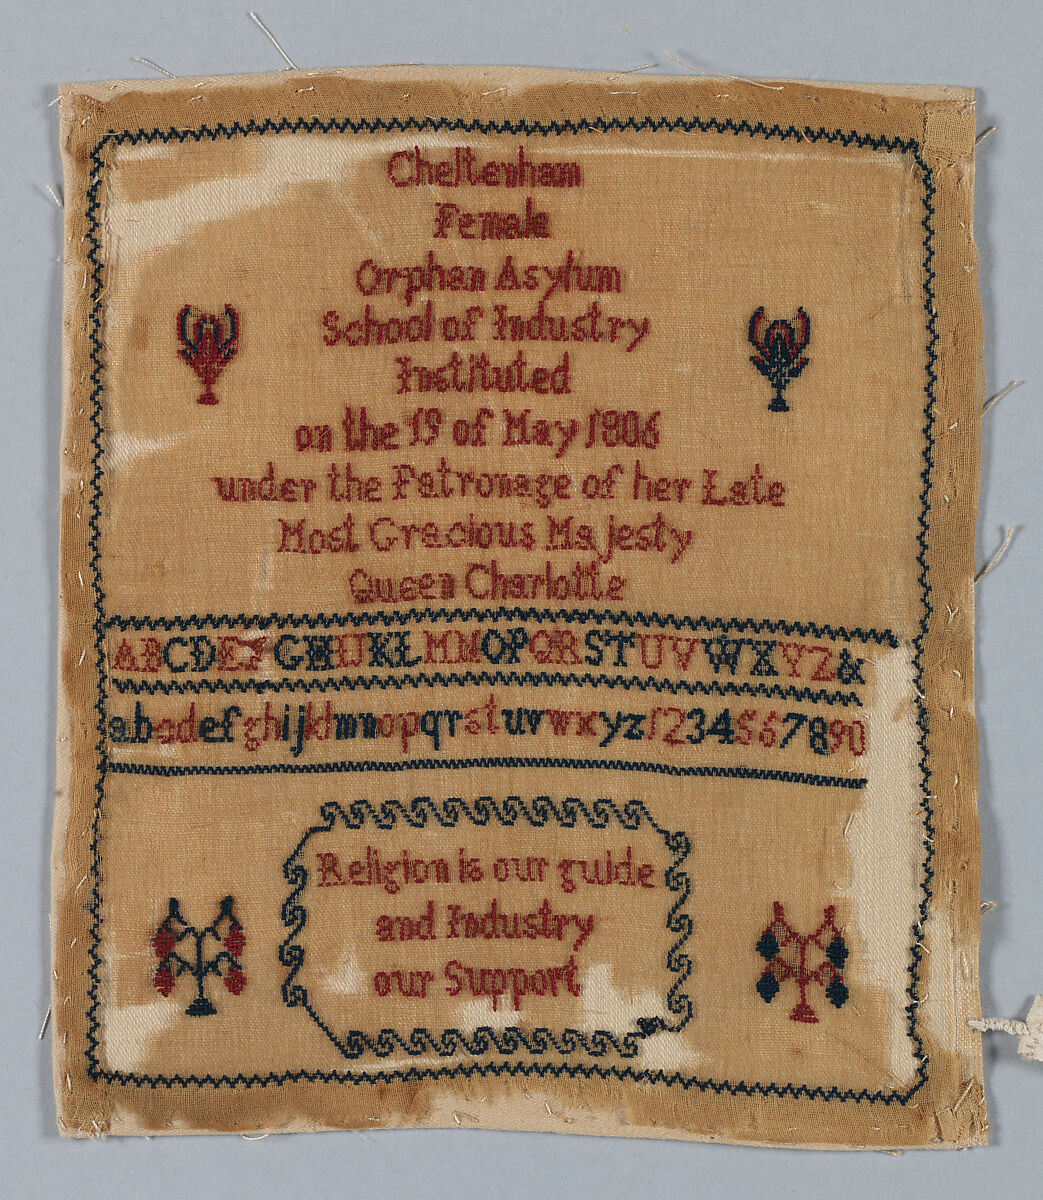 Cheltenham
Female
Orphan Asylum
School of Industry
Instituted
on the 19 of May 1806
under the Patronage of her Late
Most Gracious Majesty
Queen Charlotte
ABCDEFGHIJKLMNOPQRSTUVWXYZ&
abcdefghijklmnopqrstuvwxyz1234567890
Religion is our guide
and Industry
our Support